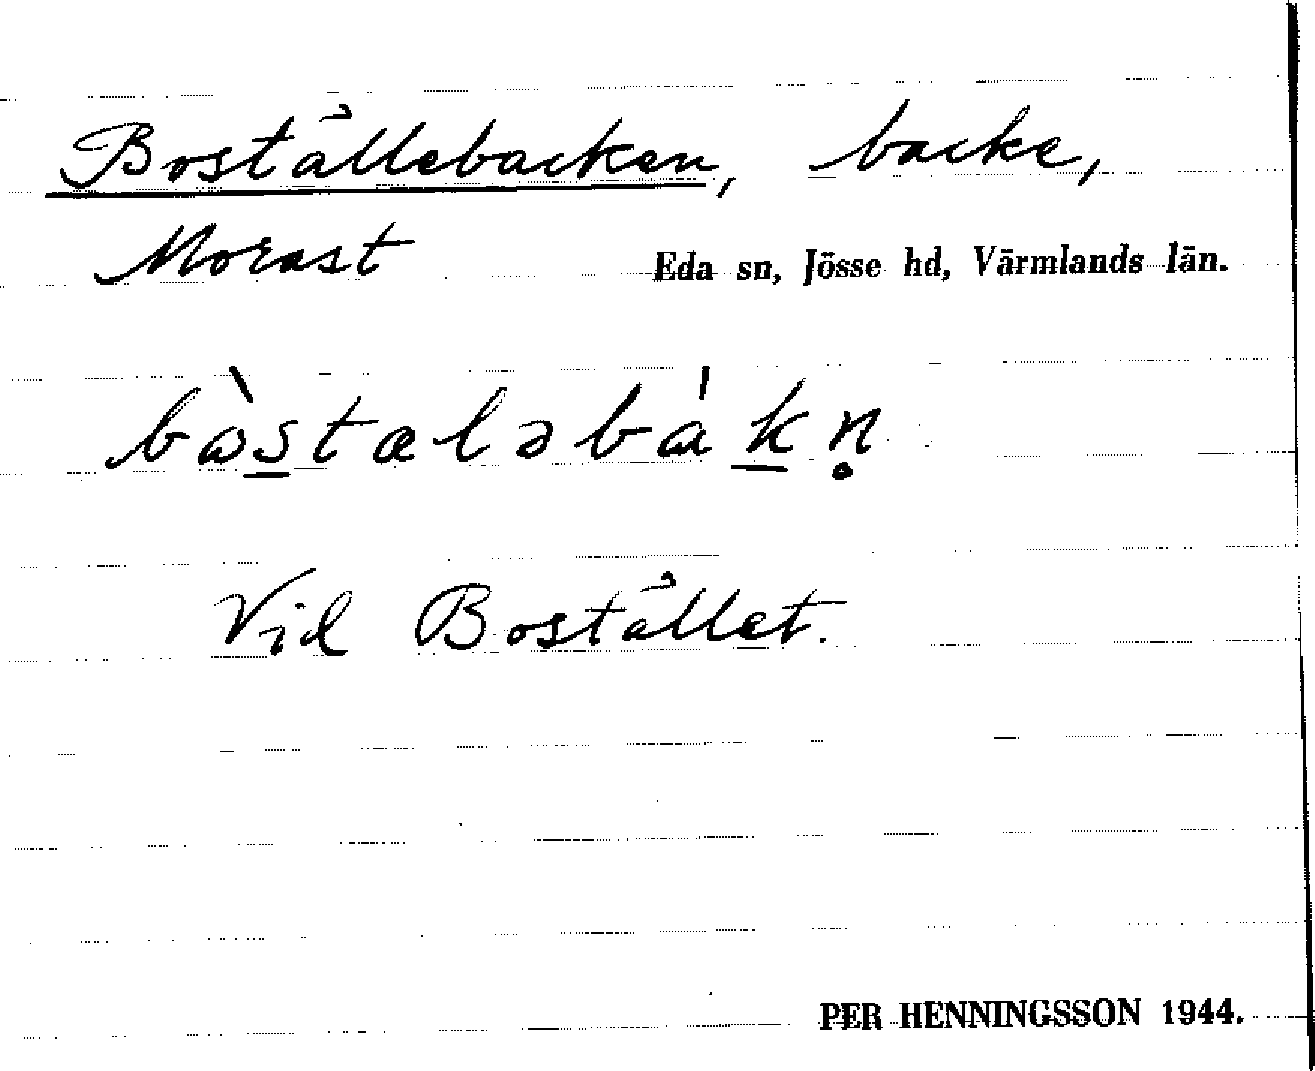 Boställebacken, backe,
Morast Eda sn, Jösse hd, Värmlands län.
bòstæləbákn̥
Vid Bostället.
PER HENNINGSSON 1944.